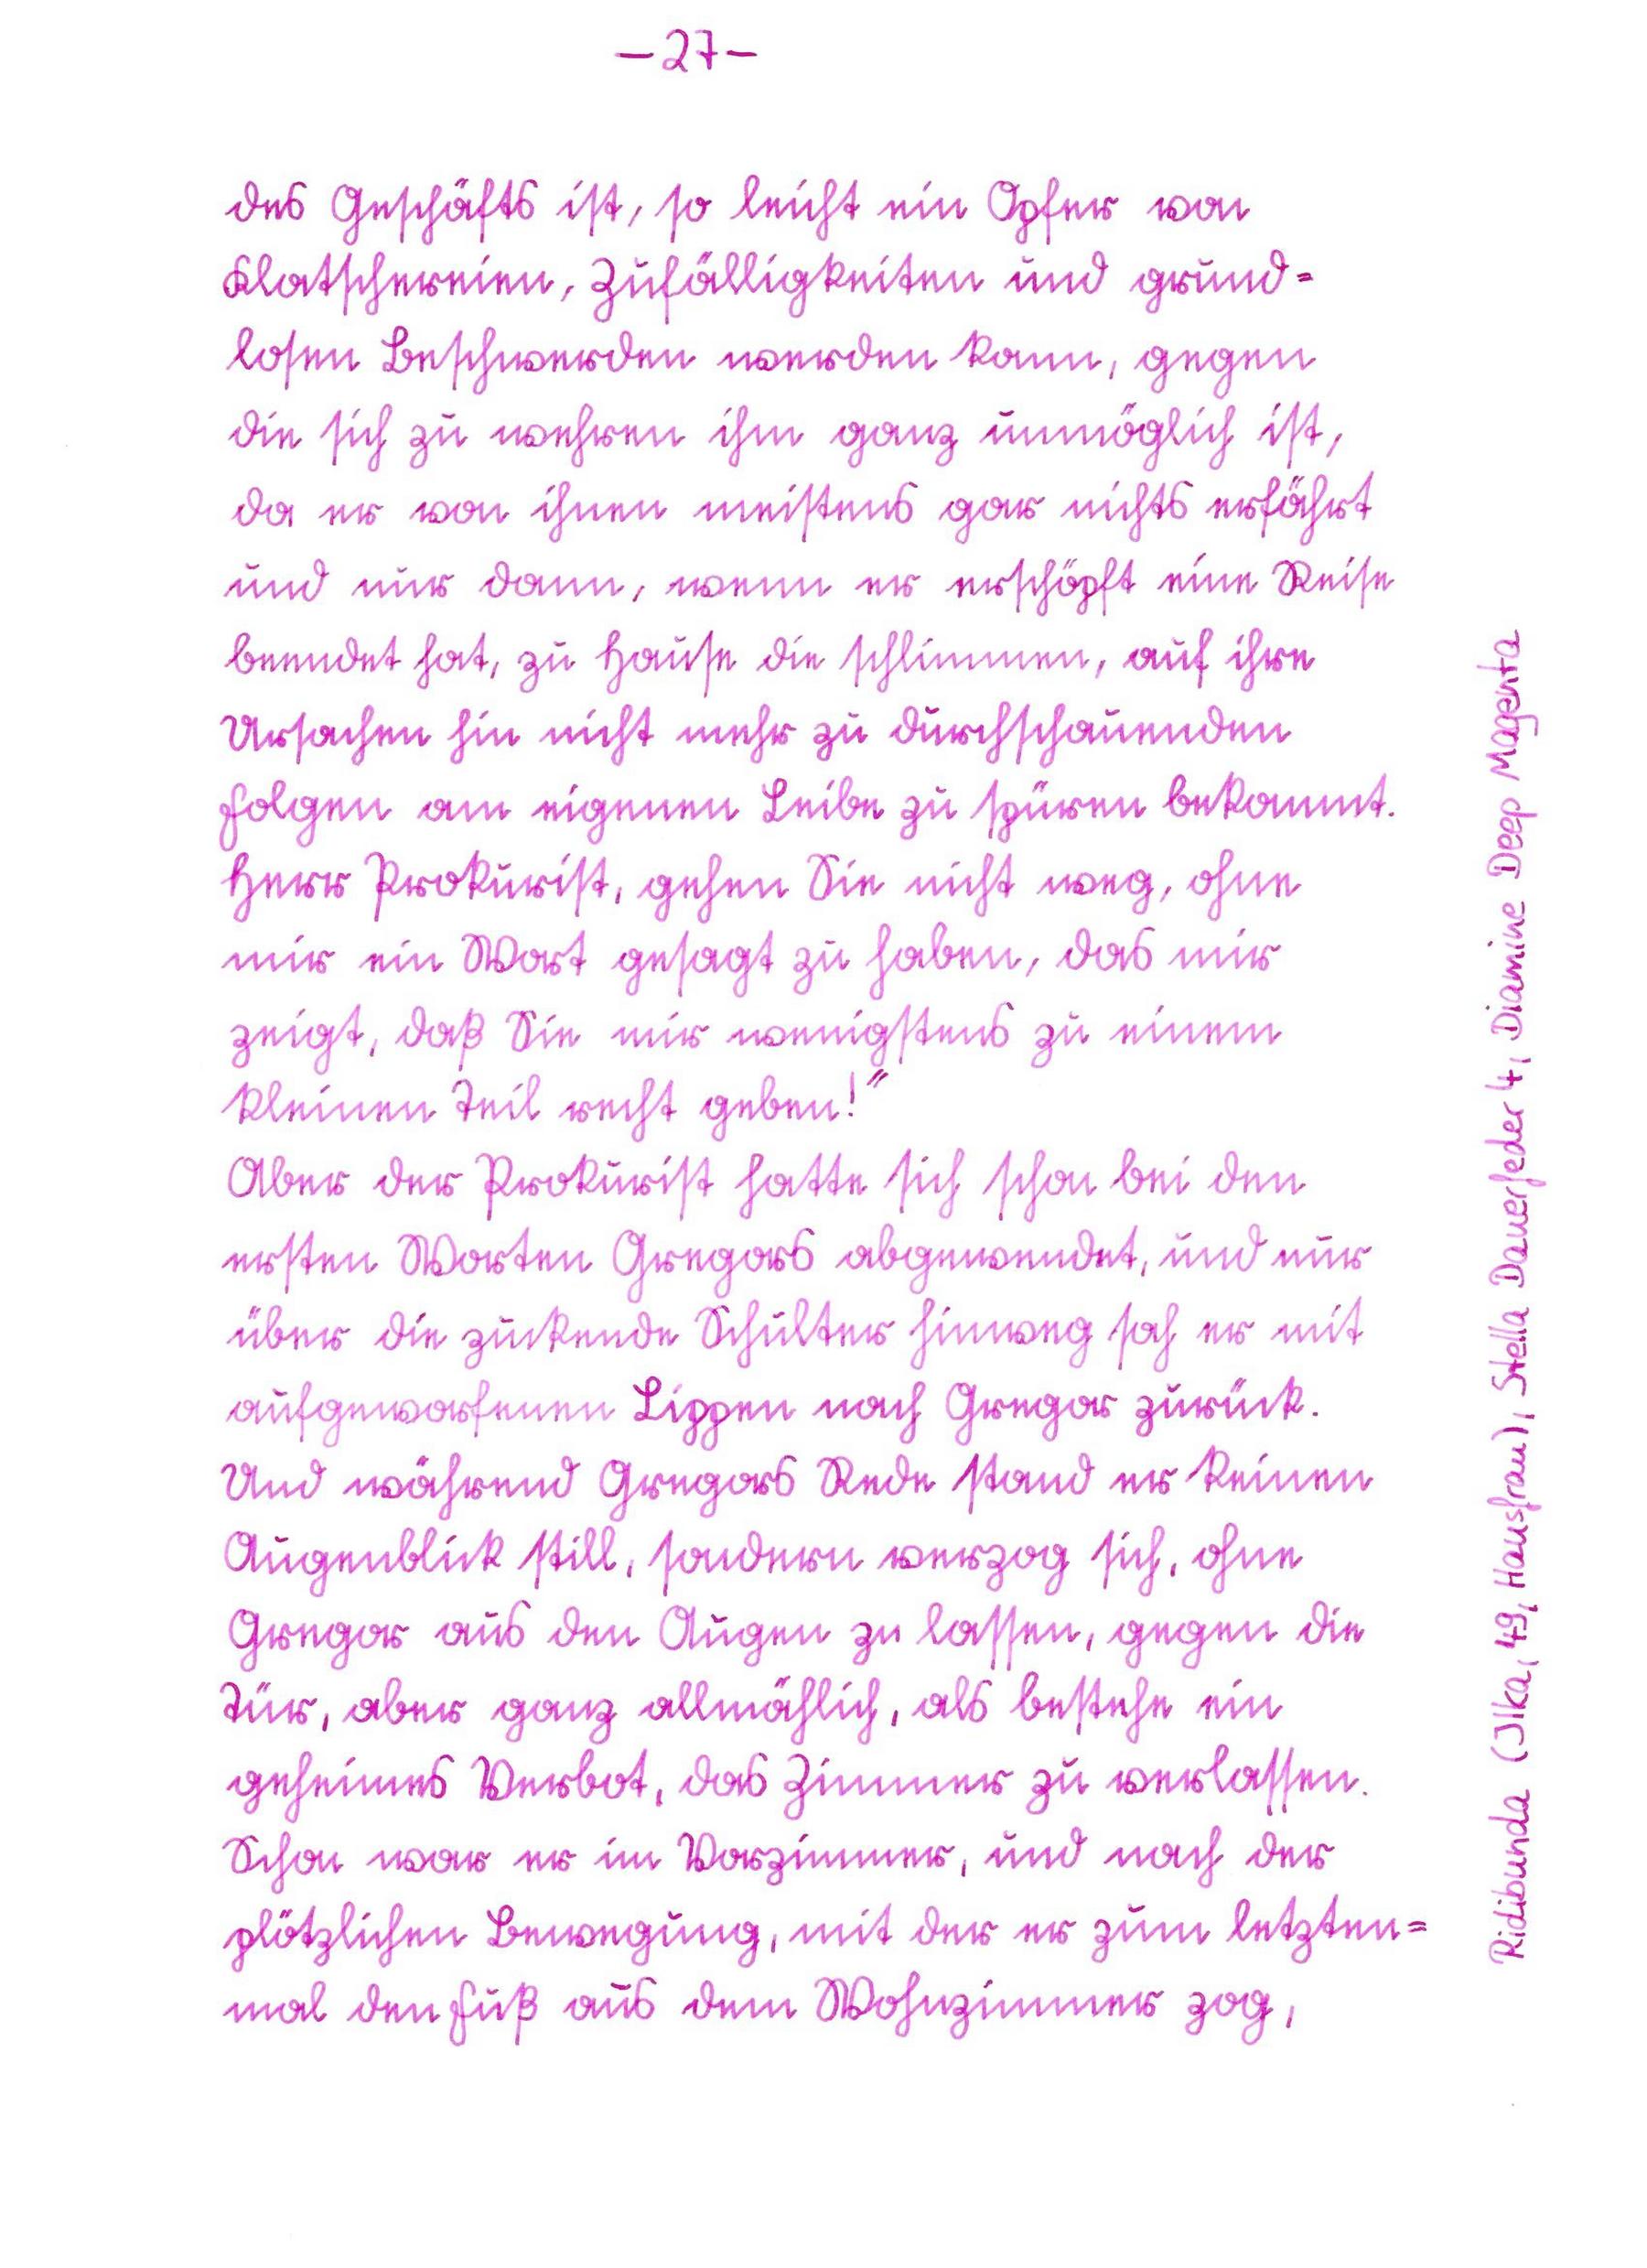 –27–
des Geschäfts ist, so leicht ein Opfer von
Klatschereien, Zufälligkeiten und grund=
losen Beschwerden werden kann, gegen
die sich zu wehren ihm ganz unmöglich ist,
da er von ihnen meistens gar nichts erfährt
und nur dann, wenn er erschöpft eine Reise
beendet hat, zu Hause die schlimmen, auf ihre
Ursachen hin nicht mehr zu durchschauenden
Folgen am eigenen Leibe zu spüren bekommt.
Herr Prokurist, gehen Sie nicht weg, ohne
mir ein Wort gesagt zu haben, das mir
zeigt, daß Sie mir wenigstens zu einem
kleinen Teil recht geben!“
Aber der Prokurist hatte sich schon bei den
ersten Worten Gregors abgewendet, und nur
über die zuckende Schulter hinweg sah er mit
aufgeworfenen Lippen nach Gregor zurück.
Und während Gregors Rede stand er keinen
Augenblick still, sondern verzog sich, ohne
Gregor aus den Augen zu lassen, gegen die
Tür, aber ganz allmählich, als bestehe ein
geheimes Verbot, das Zimmer zu verlassen.
Schon war er im Vorzimmer, und nach der
plötzlichen Bewegung, mit der er zum letzten=
mal den Fuß aus dem Wohnzimmer zog,
Ridibunda (Ilka, 49, Hausfrau), Stella Dauerfeder 4, Diamine Deep Magenta